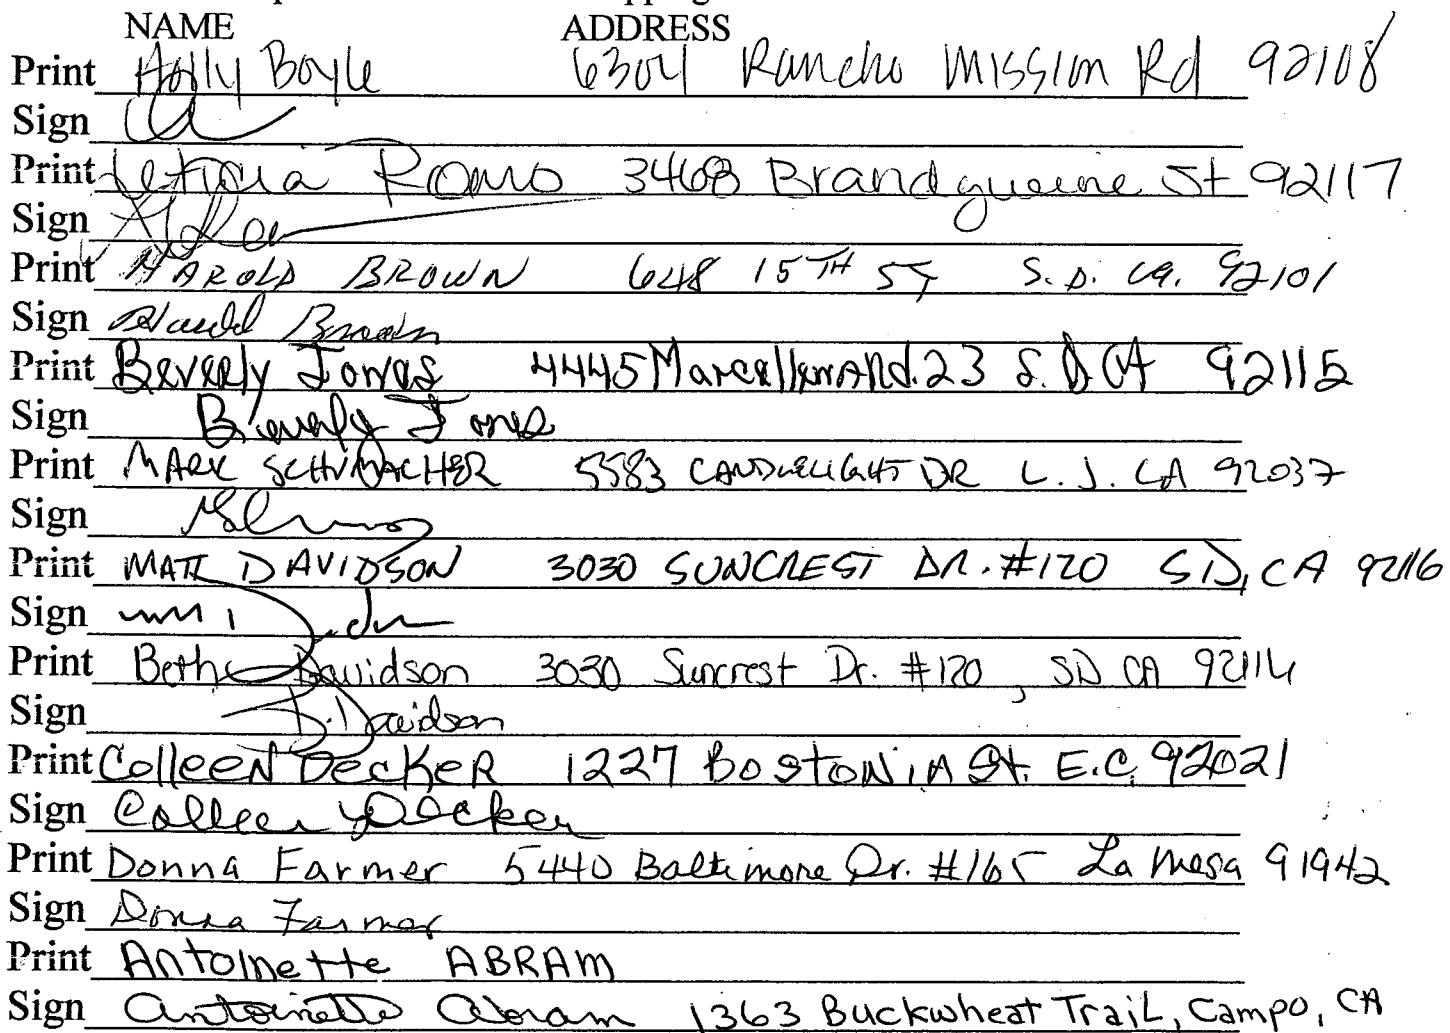 NAME ADDRESS
Print Holly Boyle 6304 Rancho Mission Rd 92108
Sign
Print Leticia Romo 3468 Brandyueine St 92117
Sign
Print HAROLD BROWN 648 15TH ST S.D. CA. 92101
Sign Harold Brown
Print Beverly Jones 4445 Rd. 23 S.D CA 92115
Sign Beverly Jones
Print MARK SCHUMACHER 5583 CANDLELIGHT DR L.J. CA 92037
Sign
Print MATT DAVIDSON 3030 SUNCREST DR. #120 SD, CA 92116
Sign
Print Beth Davidson 3030 Suncrest Dr. #120, SD CA 92116
Sign B. Davidson
Print Colleen Decker 1227 Bostonia St. E.C. 92021
Sign Colleen Decker
Print Donna Farmer 5440 Baltimore Dr. #165 La Mesa 91942
Sign Donna Farmer
Print Antoinette ABRAM
Sign Antoinette Abram 1363 Buckwheat Trail, Campo, CA